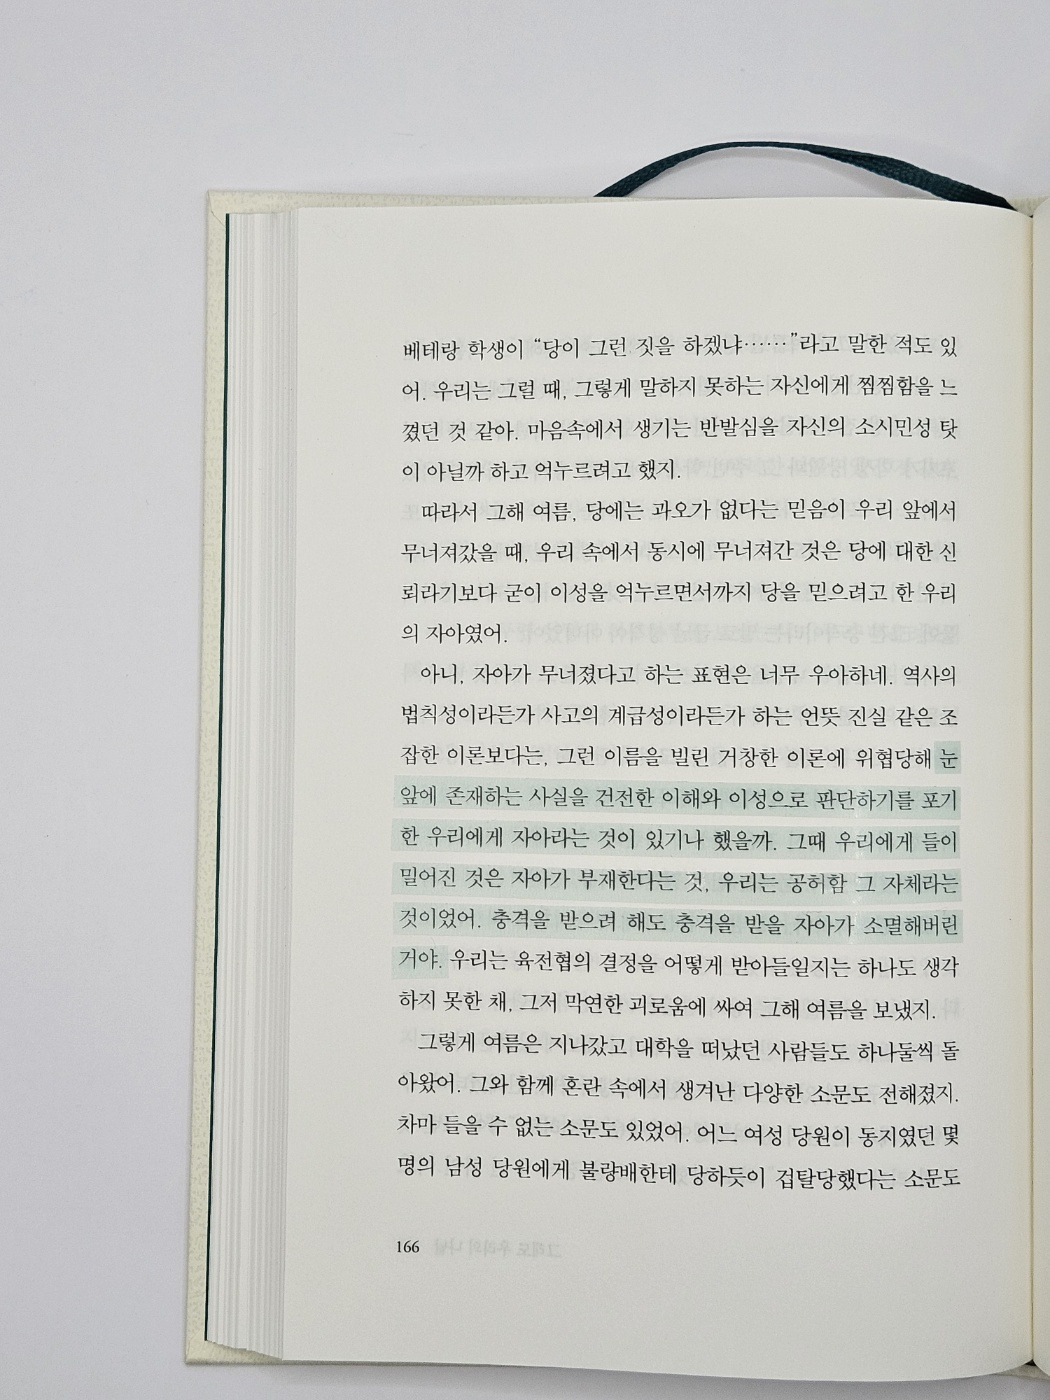 베테랑 학생이 “당이 그런 짓을 하겠냐……”라고 말한 적도 있
어. 우리는 그럴 때, 그렇게 말하지 못하는 자신에게 찜찜함을 느
꼈던 것 같아. 마음속에서 생기는 반발심을 자신의 소시민성 탓
이 아닐까 하고 억누르려고 했지.
따라서 그해 여름, 당에는 과오가 없다는 믿음이 우리 앞에서
무너져갔을 때, 우리 속에서 동시에 무너져간 것은 당에 대한 신
뢰라기보다 굳이 이성을 억누르면서까지 당을 믿으려고 한 우리
의 자아였어.
아니, 자아가 무너졌다고 하는 표현은 너무 우아하네. 역사의
법칙성이라든가 사고의 계급성이라든가 하는 언뜻 진실 같은 조
잡한 이론보다는, 그런 이름을 빌린 거창한 이론에 위협당해 눈
앞에 존재하는 사실을 건전한 이해와 이성으로 판단하기를 포기
한 우리에게 자아라는 것이 있기나 했을까. 그때 우리에게 들이
밀어진 것은 자아가 부재한다는 것, 우리는 공허함 그 자체라는
것이었어. 충격을 받으려 해도 충격을 받을 자아가 소멸해버린
거야. 우리는 육전협의 결정을 어떻게 받아들일지는 하나도 생각
하지 못한 채, 그저 막연한 괴로움에 싸여 그해 여름을 보냈지.
그렇게 여름은 지나갔고 대학을 떠났던 사람들도 하나둘씩 돌
아왔어. 그와 함께 혼란 속에서 생겨난 다양한 소문도 전해졌지.
차마 들을 수 없는 소문도 있었어. 어느 여성 당원이 동지였던 몇
명의 남성 당원에게 불량배한테 당하듯이 겁탈당했다는 소문도
166